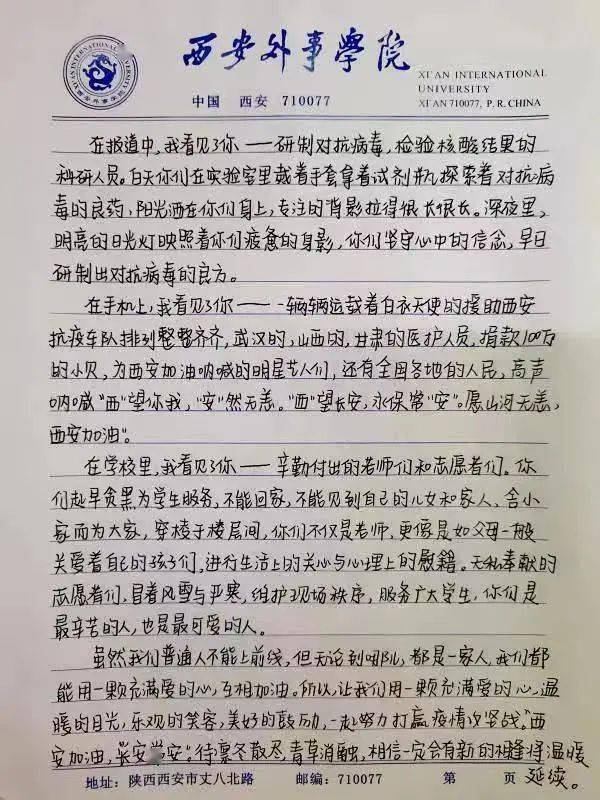 西安外事學院
XI'AN INTERNATIONAL
UNIVERSITY
中国 西安 710077
XI'AN 710077, P.R. CHINA
在报道中,我看见了你——研制对抗病毒,检验核酸结果的
科研人员。白天你们在实验室里戴着手套拿着试剂瓶探索着对抗病
毒的良药,阳光洒在你们身上,专注的背影拉得很长很长。深夜里,
明亮的日光灯映照着你们疲惫的身影,你们坚守心中的信念,早日
研制出对抗病毒的良方。
在手机上,我看见了你——一辆辆运载着白衣天使的援助西安
抗疫车队排列整整齐齐,武汉的,山西的,甘肃的医护人员,捐款100万
的小贝,为西安加油呐喊的明星艺人们,还有全国各地的人民,高声
呐喊“西”望你我,“安”然无恙。“西”望长安,永保常“安”。愿山河无恙,
西安加油”。
在学校里,我看见了你——辛勤付出的老师们和志愿者们。你
们起早贪黑为学生服务,不能回家,不能见到自己的儿女和家人,舍小
家而为大家,穿梭于楼层间,你们不仅是老师,更像是如父母一般
关爱着自己的孩子们,进行生活上的关心与心理上的慰籍。无私奉献的
志愿者们,冒着风雪与严寒,维护现场秩序,服务广大学生,你们是
最辛苦的人,也是最可爱的人。
虽然我们普通人不能上前线,但无论到哪儿,都是一家人,我们都
能用一颗充满爱的心,互相加油。所以,让我们用一颗充满爱的心,温
暖的目光,乐观的笑容,美好的鼓励,一起努力打赢疫情攻坚战。“西
安加油,长安常安”。待凛冬散尽,青草消融,相信一定会有新的相逢将温暖
延续。
地址:陕西西安市丈八北路 邮编:710077 第 页